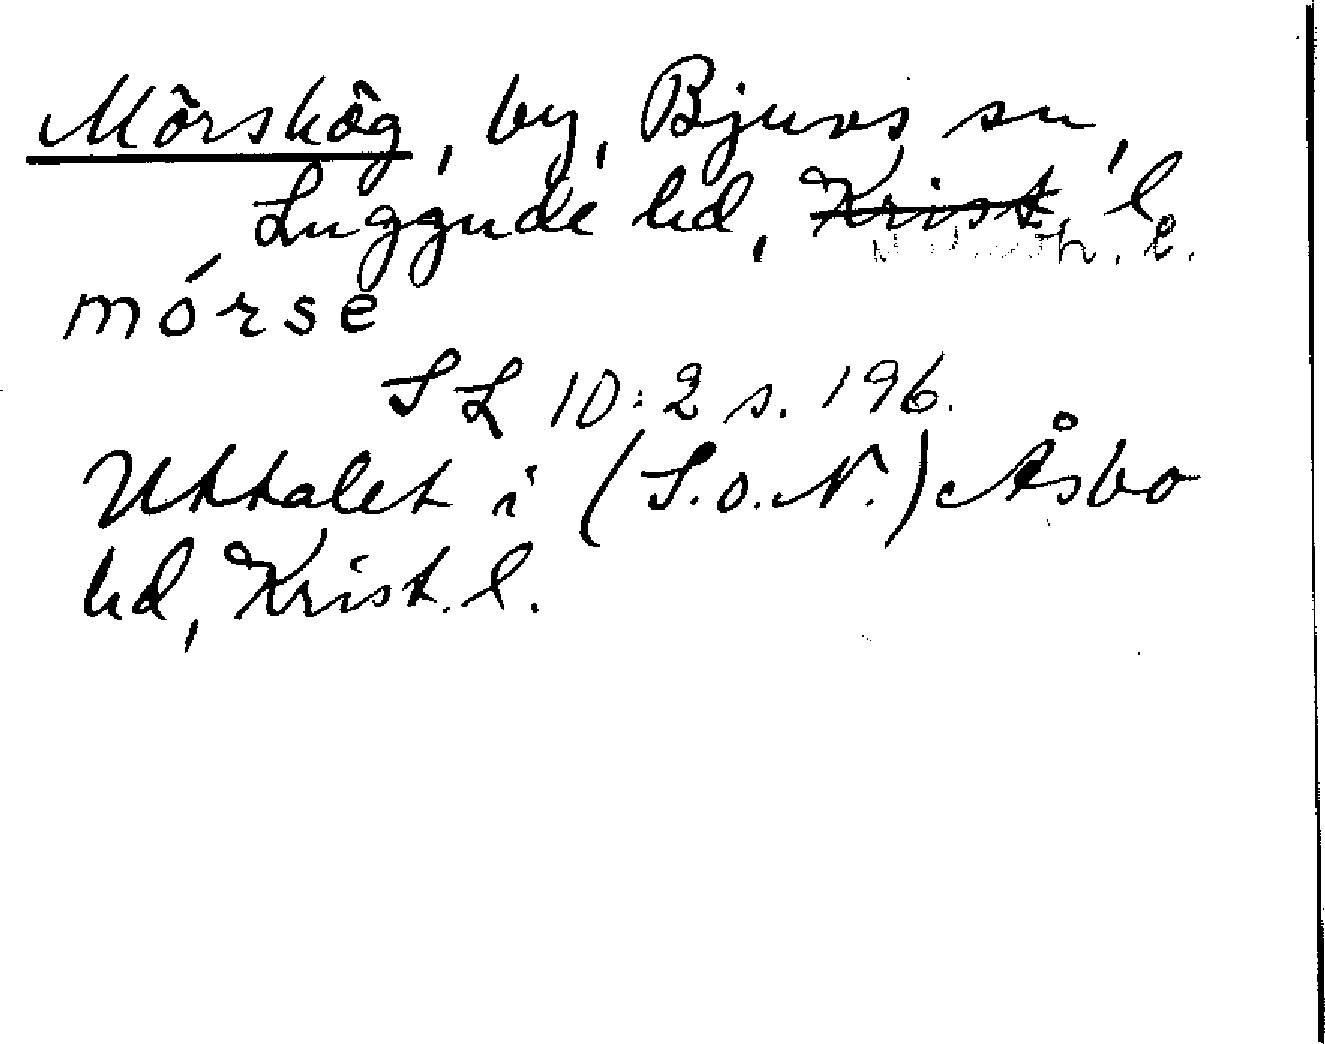 Mörskög, by, Bjuvs sn,
Luggude hd, Krist. l.
mórse
SL 10:2 s. 196.
Uttalet i (S.o.N.) Åsbo
hd, Krist. l.